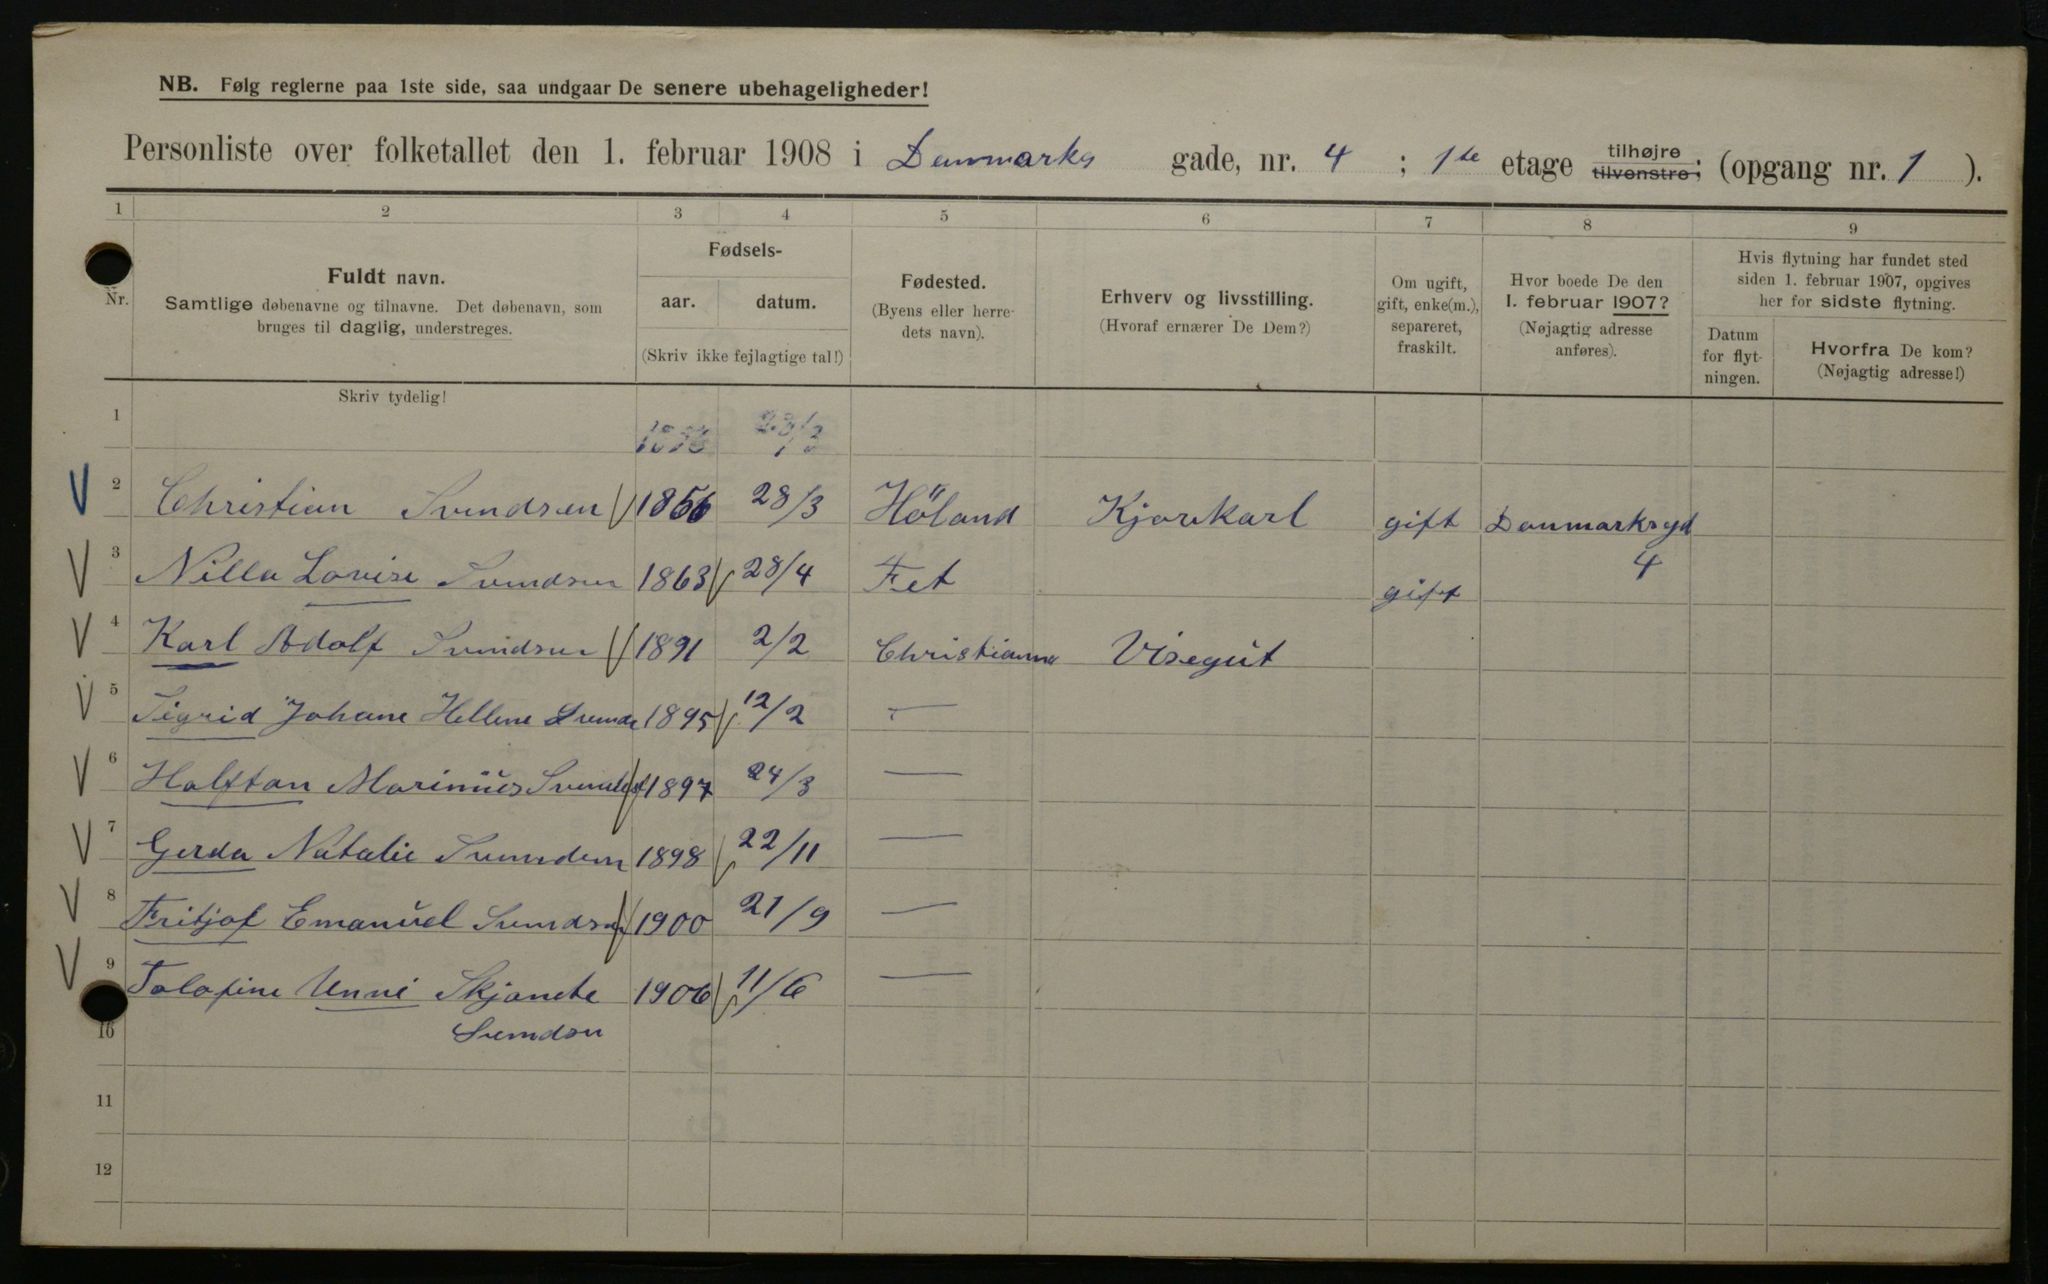 NB. Følg reglerne paa 1ste side, saa undgaar De senere ubehageligheder!
Personliste over folketallet den 1. februar 1908 i Danmarks gade, nr. 4 ; 1ste etage tilhøjre tilvenstre; (opgang nr. 1 ).
1 2 3 4 5 6 7 8 9
Nr.
Fuldt navn.
Samtlige døbenavne og tilnavne. Det døbenavn, som
bruges til daglig, understreges.
Skriv tydelig!
Fødsels-
aar. datum.
(Skriv ikke fejlagtige tal!)
Fødested.
(Byens eller herre-
dets navn).
Erhverv og livsstilling.
(Hvoraf ernærer De Dem?)
Om ugift,
gift, enke(m.),
separeret,
fraskilt.
Hvor boede De den
1. februar 1907?
(Nøjagtig adresse
anføres).
Hvis flytning har fundet sted
siden 1. februar 1907, opgives
her for sidste flytning.
Datum
for flyt-
ningen.
Hvorfra De kom?
(Nøjagtig adresse!)
1
2 Christian Svendsen 1856 28/3 Höland Kjørekarl gift Danmarksgd
4
3 Nilla Lovise Svendsen 1863 28/4 Fet gift
4 Karl Adolf Svendsen 1891 2/2 Christiania Visegut
5 Sigrid Johane Hellene Svends 1895 12/2 —
6 Halftan Marinius Svendsen 1897 24/3 —
7 Gerda Natalie Svendsen 1898 22/11 —
8 Fritjof Emanuel Svendsen 1900 21/9 —
9 Unni 1906 11/6 —
10 Svendsen
11
12